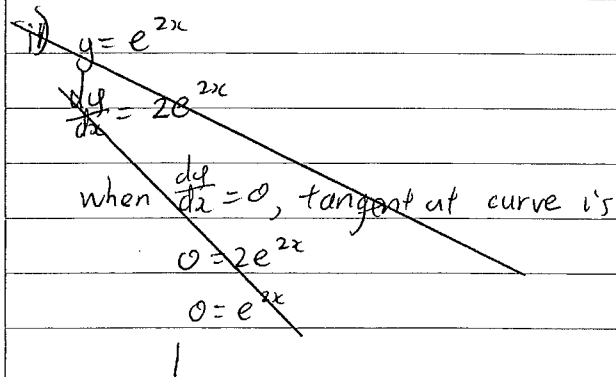 ii) y = e^{2x}
dy/dx = 2e^{2x}
when dy/dx = 0, tangent at curve is
0 = 2e^{2x}
0 = e^{2x}